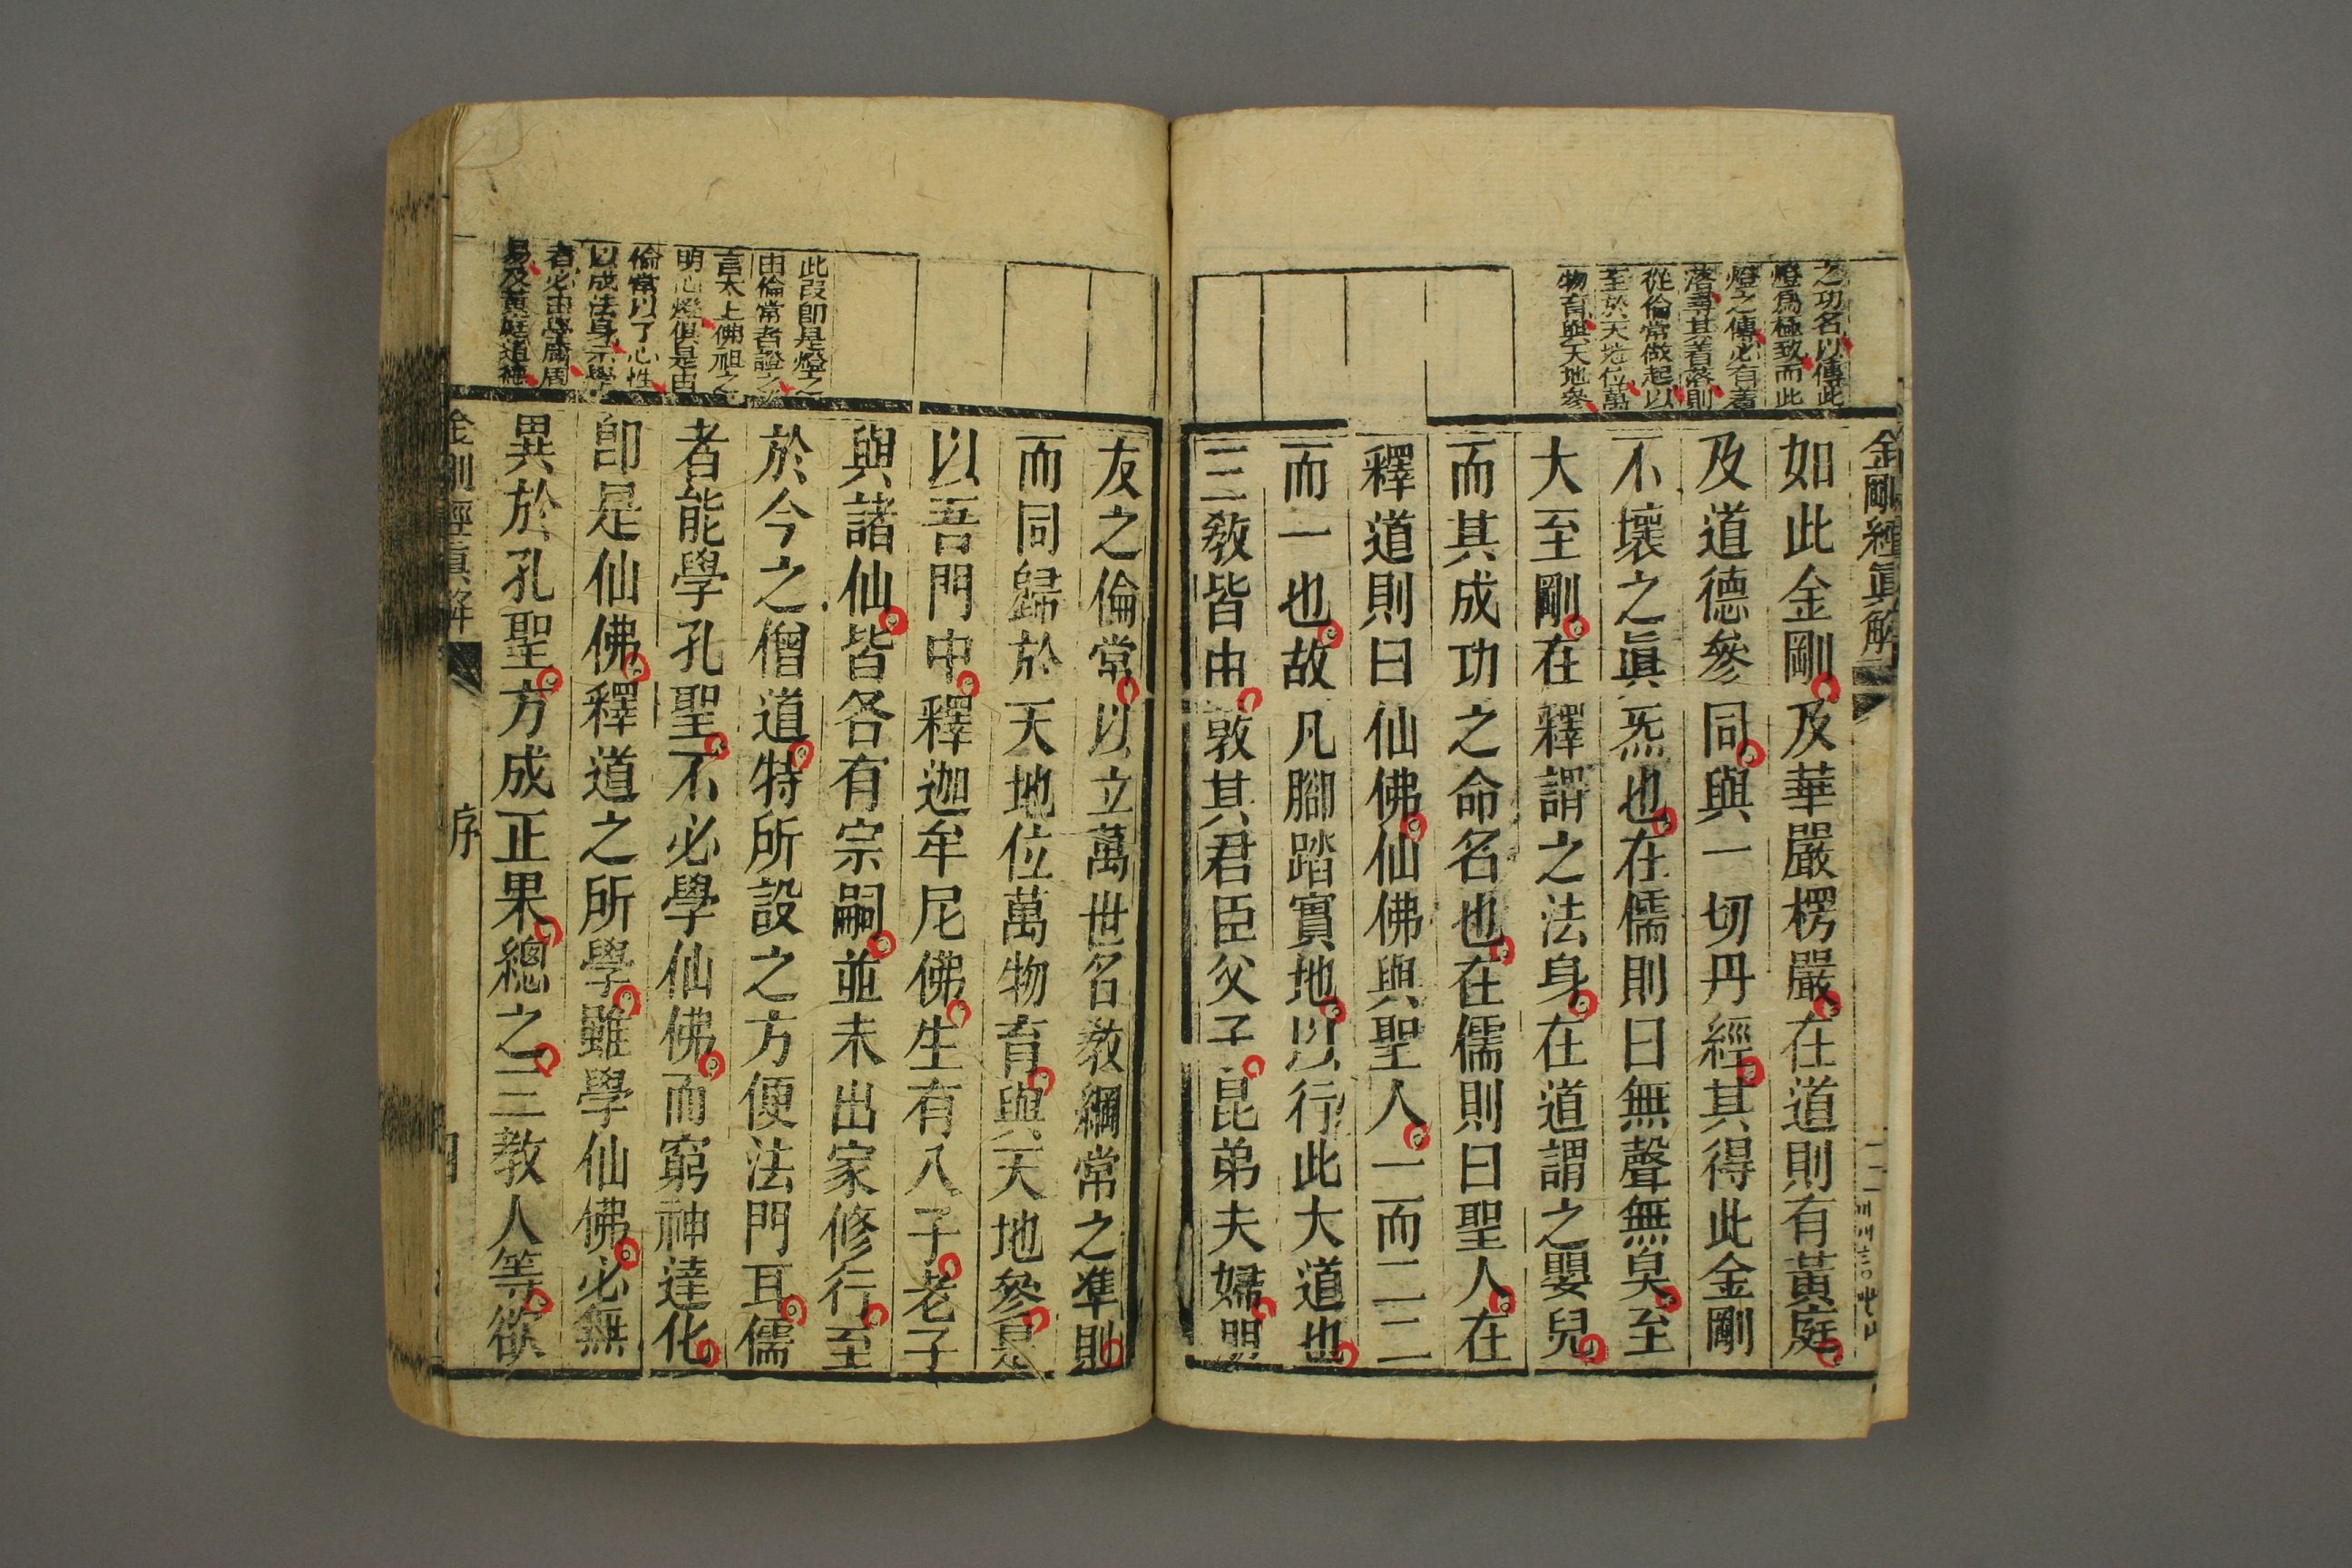 金剛經眞解
之功名以傳此
燈爲極致而此
燈之傳必有着
落尋其着落則
從倫常做起以
至於天地位萬
物育與天地參
如此金剛及華嚴楞嚴在道則有黃庭
及道德參同與一切丹經其得此金剛
不壞之眞炁也在儒則曰無聲無臭至
大至剛在釋謂之法身在道謂之嬰兒
而其成功之命名也在儒則曰聖人在
釋道則曰仙佛仙佛與聖人一而二二
而一也故凡腳踏實地以行此大道也
三敎皆由敦其君臣父子昆弟夫婦朋
此段卽是燈之
由倫常者證之
言太上佛祖之
明心燈俱是由
倫常以了心性
以成法身示學
者必由學庸周
易及黃庭道德
友之倫常以立萬世名敎綱常之準則
而同歸於天地位萬物育與天地參是
以吾門中釋迦牟尼佛生有八子老子
與諸仙皆各有宗嗣並未出家修行至
於今之僧道特所設之方便法門耳儒
者能學孔聖不必學仙佛而窮神達化
卽是仙佛釋道之所學雖學仙佛必無
異於孔聖方成正果總之三敎人等欲
金剛經眞解
序
四